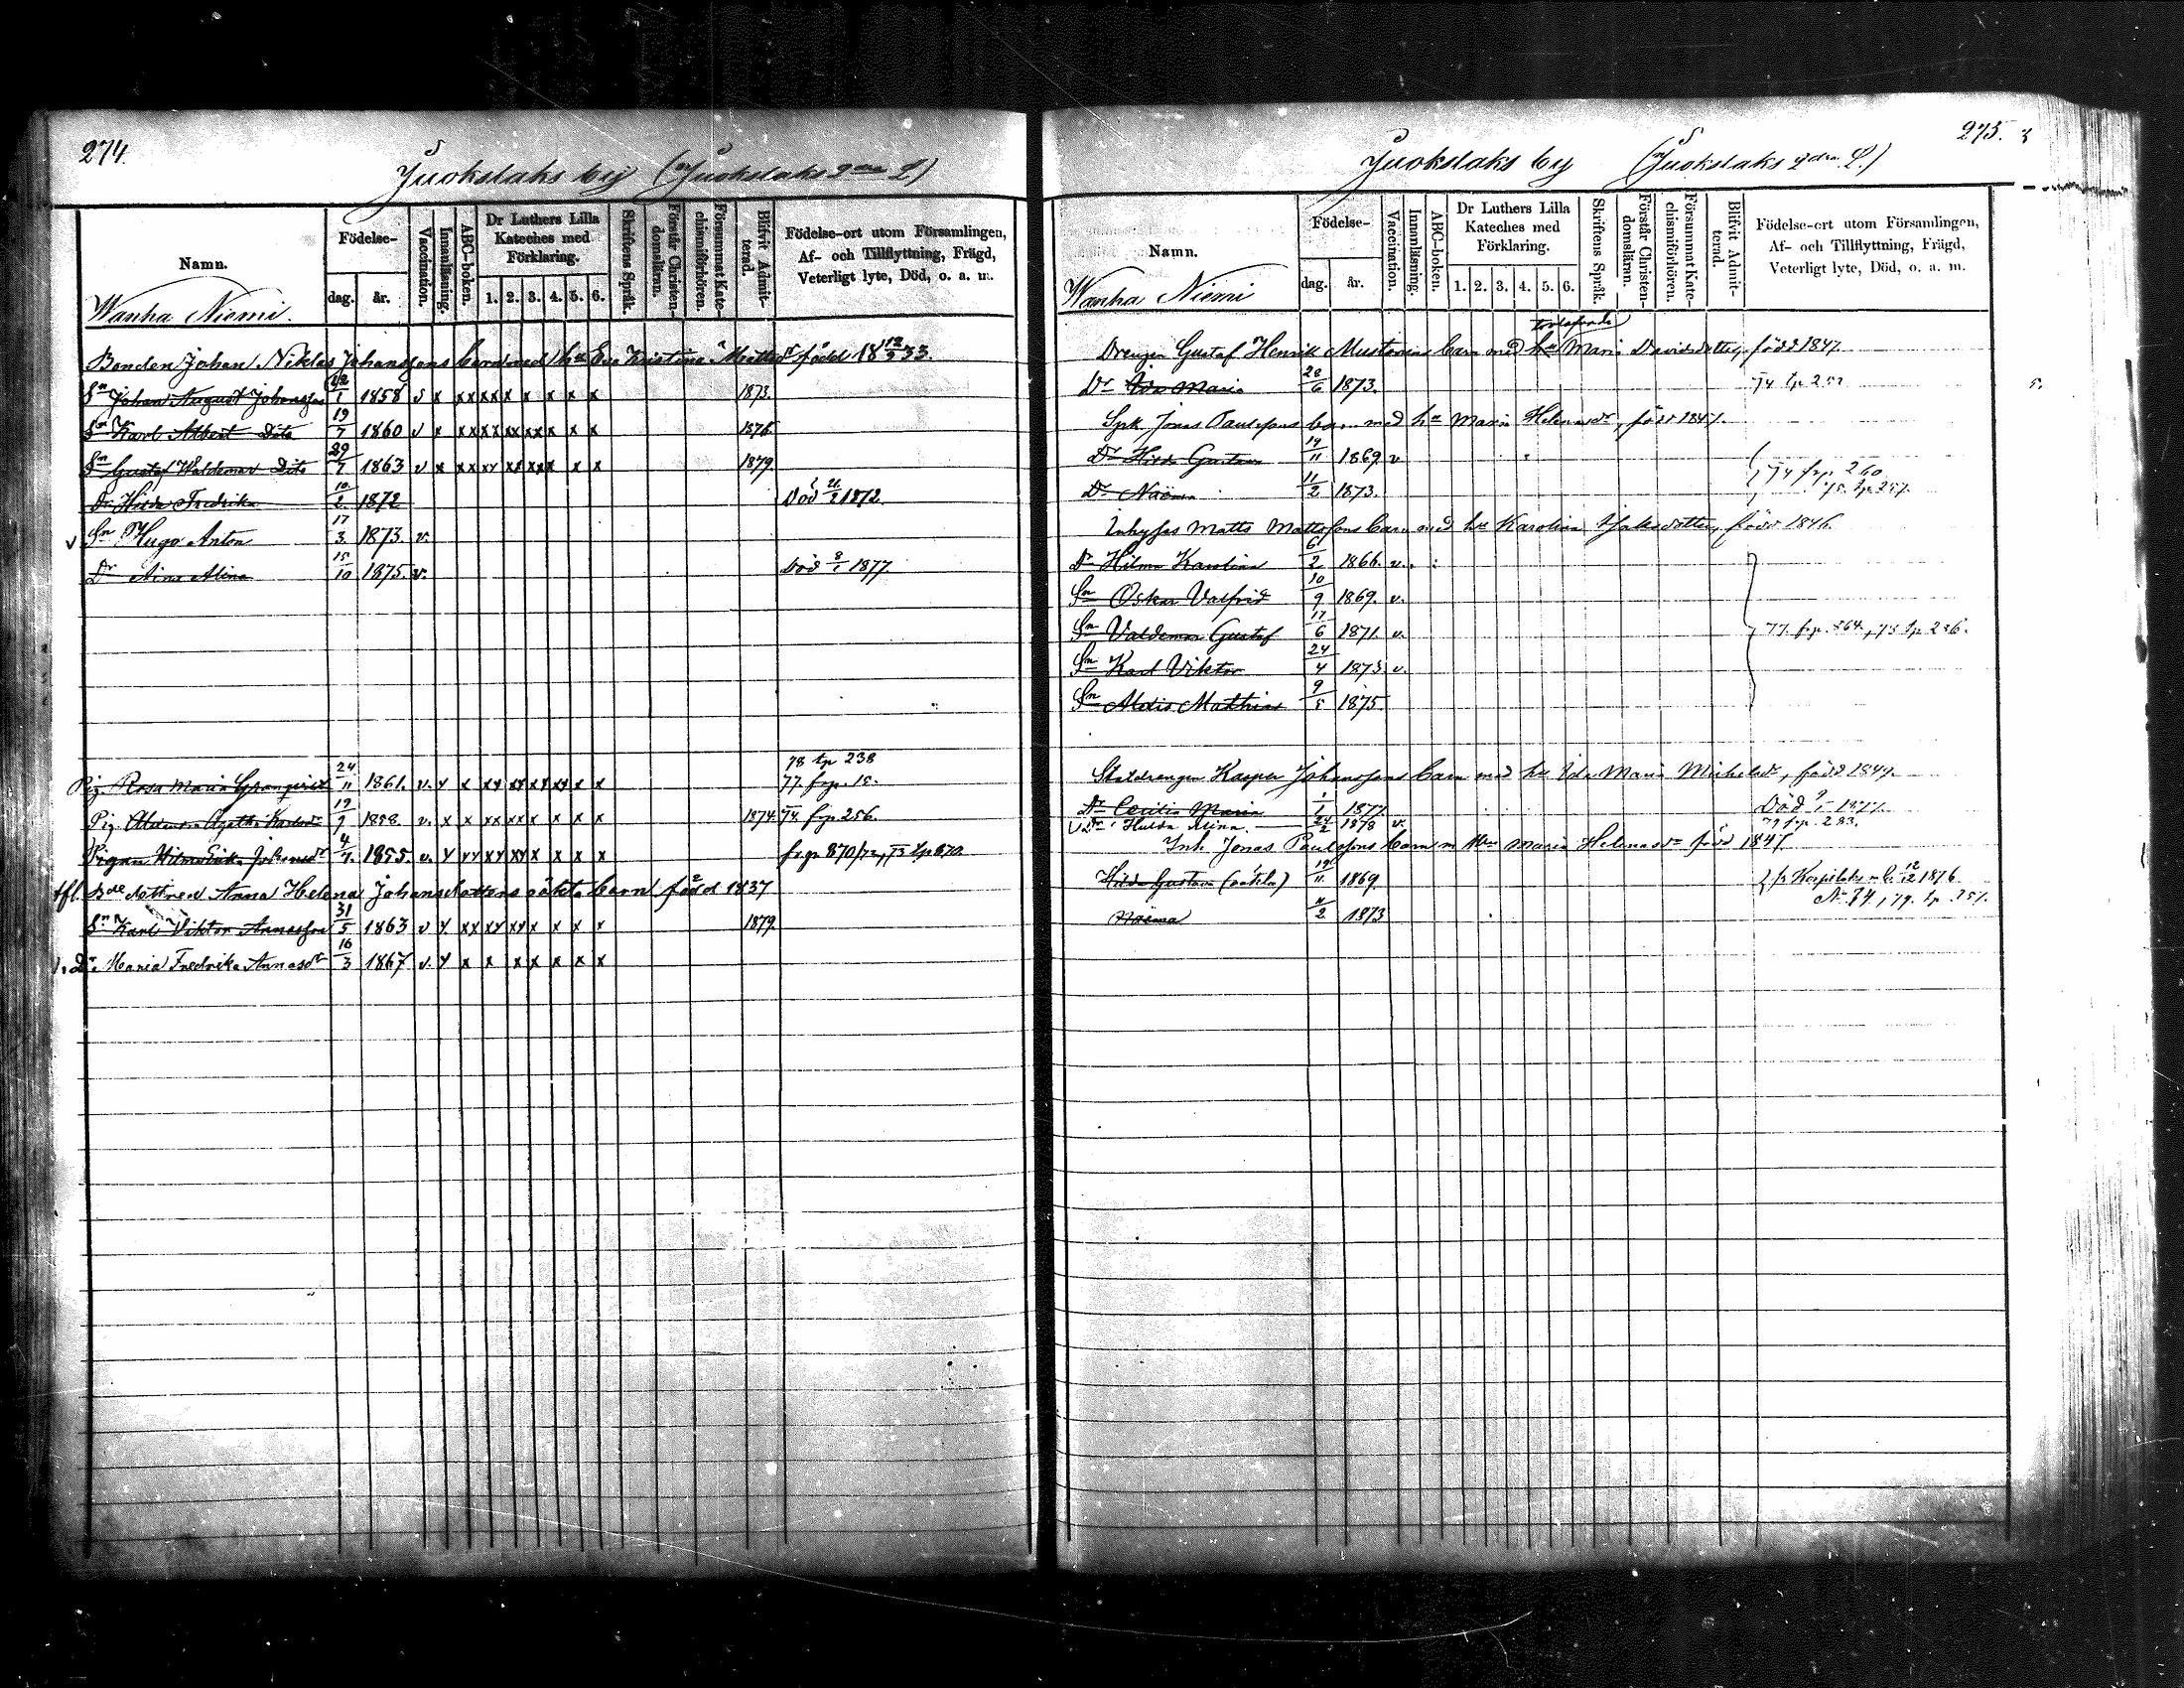 274.
Juokslaks by (Juokslaks gdra L)
Namn.
Födelse-
dag.
år.
Vaccination.
Innanläsning.
ABC-boken.
Dr Luthers Lilla
Kateches med
Förklaring.
1. 2. 3. 4. 5. 6.
Skriftens Språk.
Förstår Christen-
domsläran.
Försummat Kate-
chismiförhören.
Blifvit Admit-
terad.
Födelse-ort utom Församlingen,
Af- och Tillflyttning, Frägd,
Veterligt lyte, Död, o. a. m.
Wanha Niemi.
Bonden Johan Niklas Johanssons barn med hu Eva Kristina Mattsdr född 18 12/2 33.
Sn Johan August Johansson 22/1 1858 v x xx xx x x x x x 1873.
Sn Karl Albert Dito 19/7 1860 v x xx xx xx xx x x 1876.
Sn Gustaf Waldemar Dito 29/7 1863 v x xx xy xx xxx x x 1879.
Dr Hilda Fredrika 10/2 1872 Död 21/2 1872.
v Sn Hugo Anton 17/3 1873 v.
Dr Aina Alina 15/10 1875. v. Död 8/1 1877
78 tp 238
Pig. Rosa Maria Granqvist 24/11 1861. v. y x xy xy xy xy x x 77. frp. 15.
Pig. Agatha Karlsdr 19/9 1858. v. x x xx xx x x x x 1874 74 frp 256.
Pigan Wilma Erika Johansdr 4/4 1855. v. y yy xy xy x x x x frp 870/72, 73 tp 870.
Bde dottren Anna Helena Johansdotters oäkta barn född 1837
Sn Karl Viktor Annasson 31/5 1863 v y xx xy xy x x x x 1879.
Dr Maria Fredrika Annasdr 16/3 1867 v. y x x xx x x x x
275.
Juokslaks by (Juokslaks gdra L.)
Namn.
Födelse-
dag.
år.
Vaccination.
Innanläsning.
ABC-boken.
Dr Luthers Lilla
Kateches med
Förklaring.
1. 2. 3. 4. 5. 6.
Skriftens Språk.
Förstår Christen-
domsläran.
Försummat Kate-
chismiförhören.
Blifvit Admit-
terad.
Födelse-ort utom Församlingen,
Af- och Tillflyttning, Frägd,
Veterligt lyte, Död, o. a. m.
Wanha Niemi
Drengen Gustaf Henrik Mustonins barn med hu Maria Davidsdotter, född 1847.
Dr Ida Maria 20/6 1873. 74 tp 252
Spk. Jonas Paulssons barn med hu Maria Helenasdr, född 1847.
Dr Hilda Gustava 19/11 1869 v
74 frp. 260
Dr Naëma 11/2 1873. 75. tp. 257.
Inhyses Matts Mattssons barn med hu Karolina Jakobsdotter, född 1846.
Dr Hilma Karolina 6/2 1866. v.
Sn Oskar Valfrid 10/9 1869. v.
Sn Valdemar Gustaf 17/6 1871. v. 77. frp. 864, 78 tp 286.
Sn Karl Viktor 24/4 1873 v.
Sn Aldis Mathias 9/5 1875
Statdrengen Kasper Johanssons barn med hu Ida Maria Mickelsdr, född 1847.
Dr Cecilia Maria 1/1 1877. Död 9/1 1877.
v Dr Hulda Mina. 24/2 1878 v. 79 frp. 283.
Inh. Jonas Paulssons barn m. Hu Maria Helenasdr född 1847
Hilda Gustava (oäkta) 19/11 1869. 12/12 1876
No 74, 79. tp. 257.
Naëma 11/2 1873